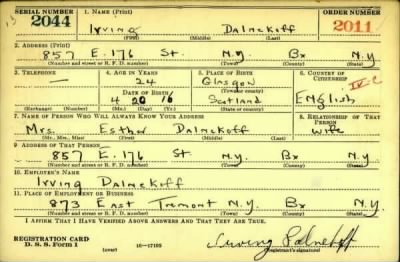 SERIAL NUMBER 1. NAME (Print) ORDER NUMBER
2044 Irving Dalnekoff 2011
(First) (Middle) (Last)
2. ADDRESS (Print)
857 E. 176 St. N.Y. Bx N.Y
(Number and street or R. F. D. number) (Town) (County) (State)
3. TELEPHONE 4. AGE IN YEARS 5. PLACE OF BIRTH 6. COUNTRY OF CITIZENSHIP
— 24 Glasgow IV-C
DATE OF BIRTH (Town or county)
4 20 16 Scotland English
(Exchange) (Number) (Mo.) (Day) (Yr.) (State or country)
7. NAME OF PERSON WHO WILL ALWAYS KNOW YOUR ADDRESS 8. RELATIONSHIP OF THAT PERSON
Mrs. Esther Dalnekoff wife
(Mr., Mrs., Miss) (First) (Middle) (Last)
9. ADDRESS OF THAT PERSON
857 E. 176 St N.Y. Bx N.Y.
(Number and street or R. F. D. number) (Town) (County) (State)
10. EMPLOYER'S NAME
Irving Dalnekoff
11. PLACE OF EMPLOYMENT OR BUSINESS
873 East Tremont N.Y. Bx N.Y.
(Number and street or R. F. D. number) (Town) (County) (State)
I AFFIRM THAT I HAVE VERIFIED ABOVE ANSWERS AND THAT THEY ARE TRUE.
REGISTRATION CARD
D. S. S. Form 1 (over) 16—17105 Irving Dalnekoff
(Registrant's signature)